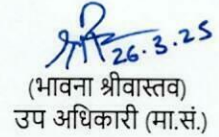 26.3.25
(भावना श्रीवास्तव)
उप अधिकारी (मा.सं.)